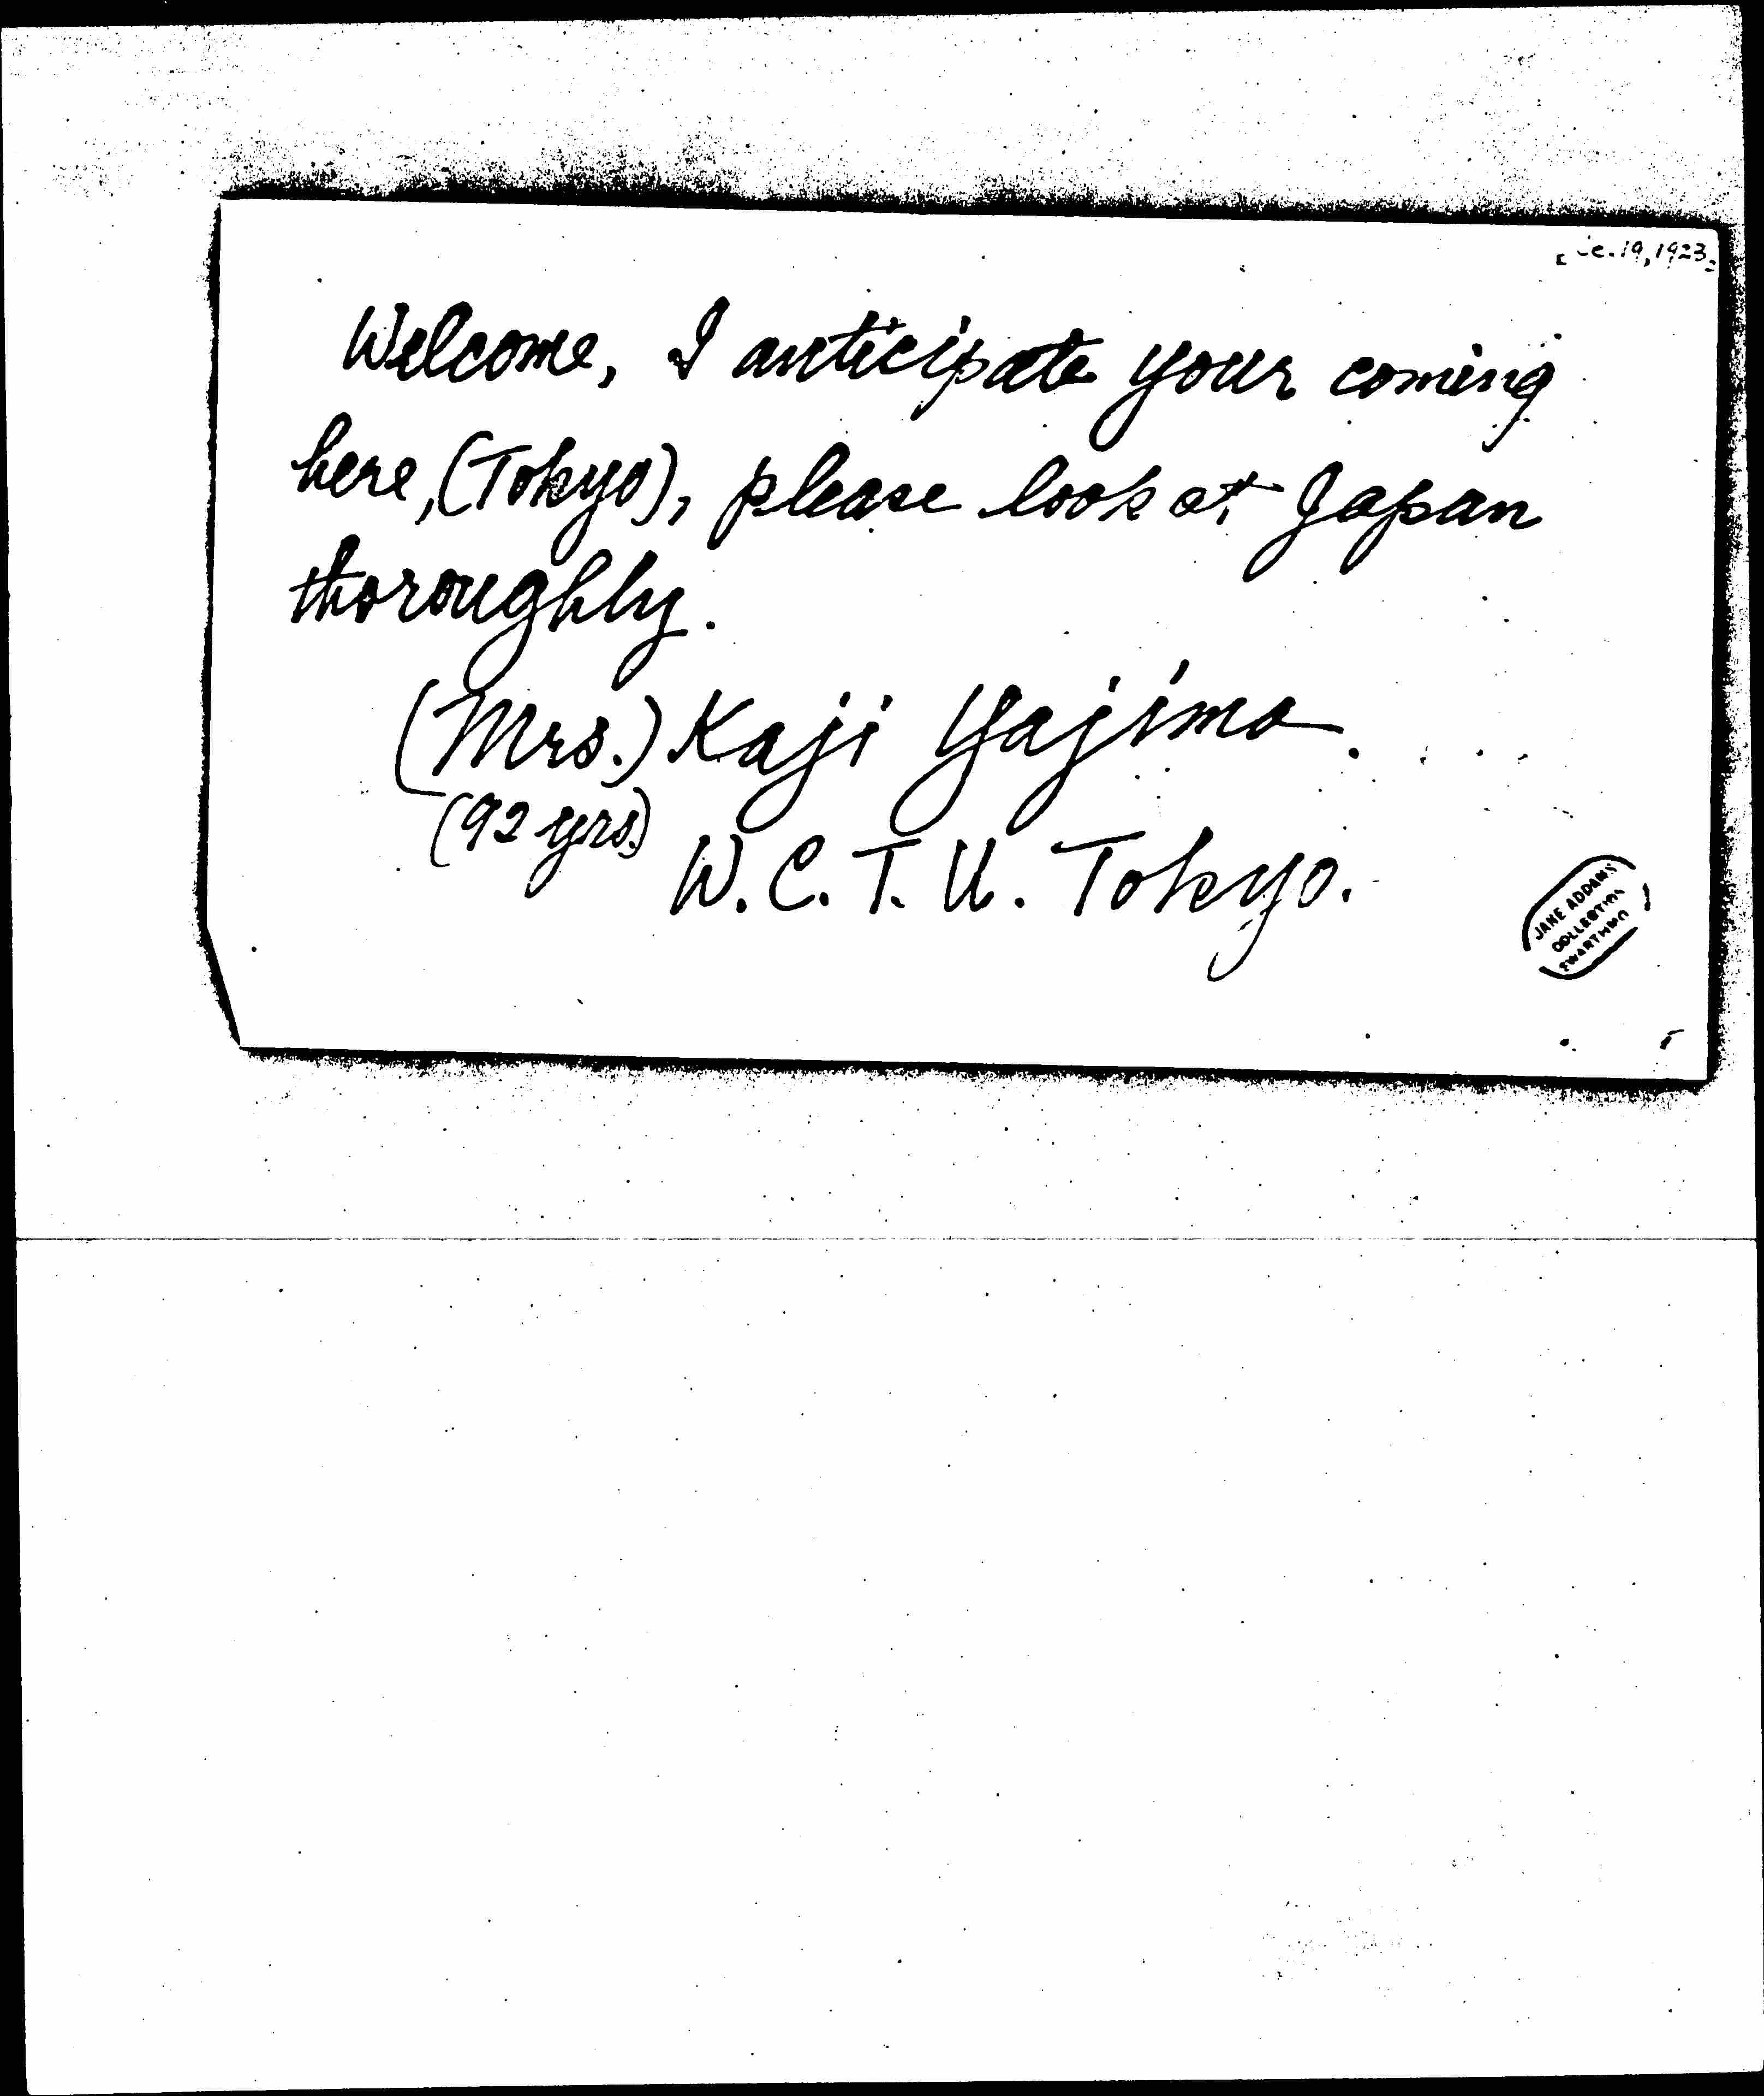 19, 1923
Welcome, I anticipate your coming
here, (Tokyo), please look at Japan
thoroughly.
(Mrs.) Kaji Yajima.
(92 yrs.)
W. C. T. U. Tokyo.
JANE ADDAMS
COLLECTION
SWARTHMO